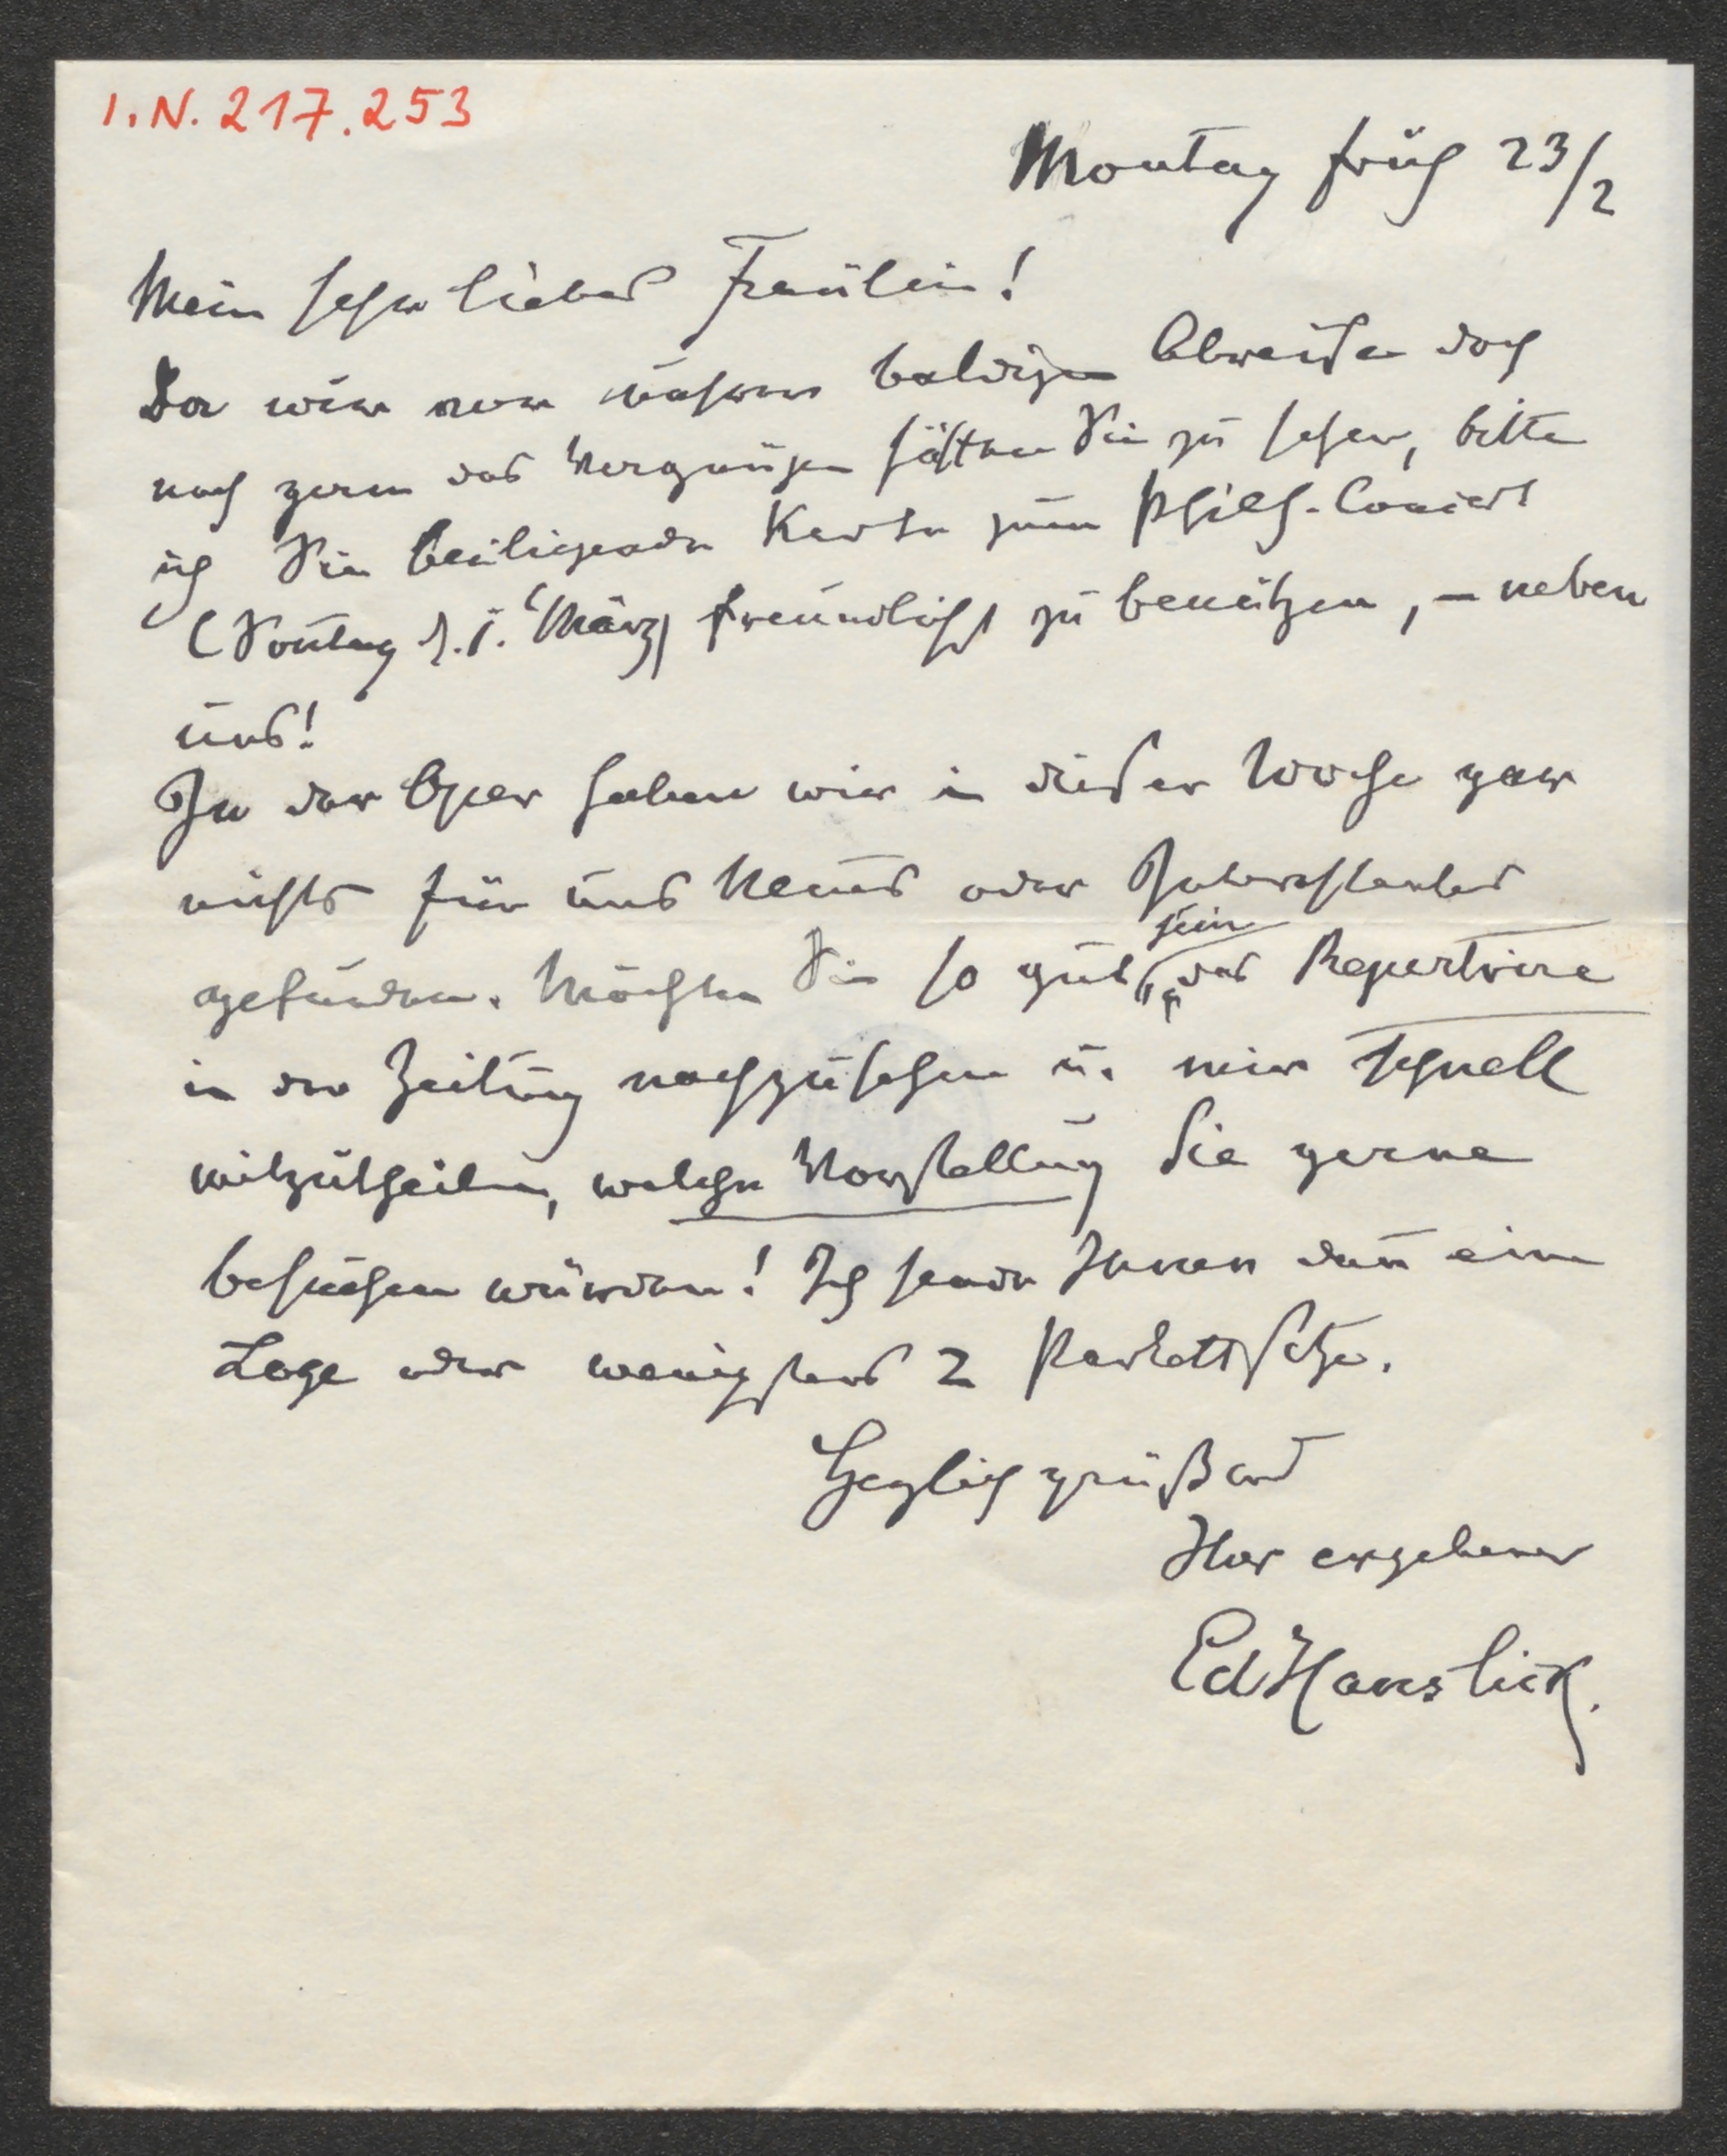 I.N. 217.253
Montag früh 23/2
Mein sehr liebes Fräulein!
Da wir vor unserer baldigen Abreise doch
noch gern das Vergnügen hätten Sie zu sehen, bitte
ich Sie beiliegende Karte zum Philh. Concert
(Sontag d. 1. März) freundlichst zu benützen, – neben
uns!
In der Oper haben wir in dieser Woche gar
nichts für uns Neues oder Interessantes
gefunden. Möchten Sie so gut sein das Repertoire
in der Zeitung nachzusehen u. mir schnell
mitzutheilen, welche Vorstellung Sie gerne
besuchen würden! Ich sende Ihnen dann eine
Loge oder wenigstens 2 Parkettsitze.
Herzlich grüßend
Ihr ergebener
Ed Hanslick.